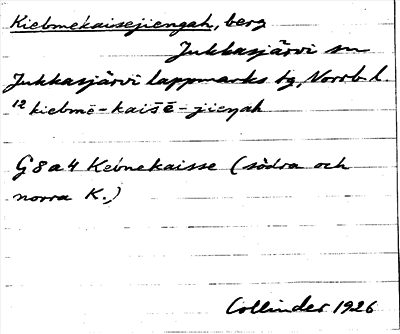 Kiebmekaisejiengah, berg
Jukkasjärvi sn
Jukkasjärvi lappmarks tg, Norrb. l.
12 kiebmē-kaisē-jieŋah
G8a4 Kebnekaisse (södra och
norra K.)
Collinder 1926